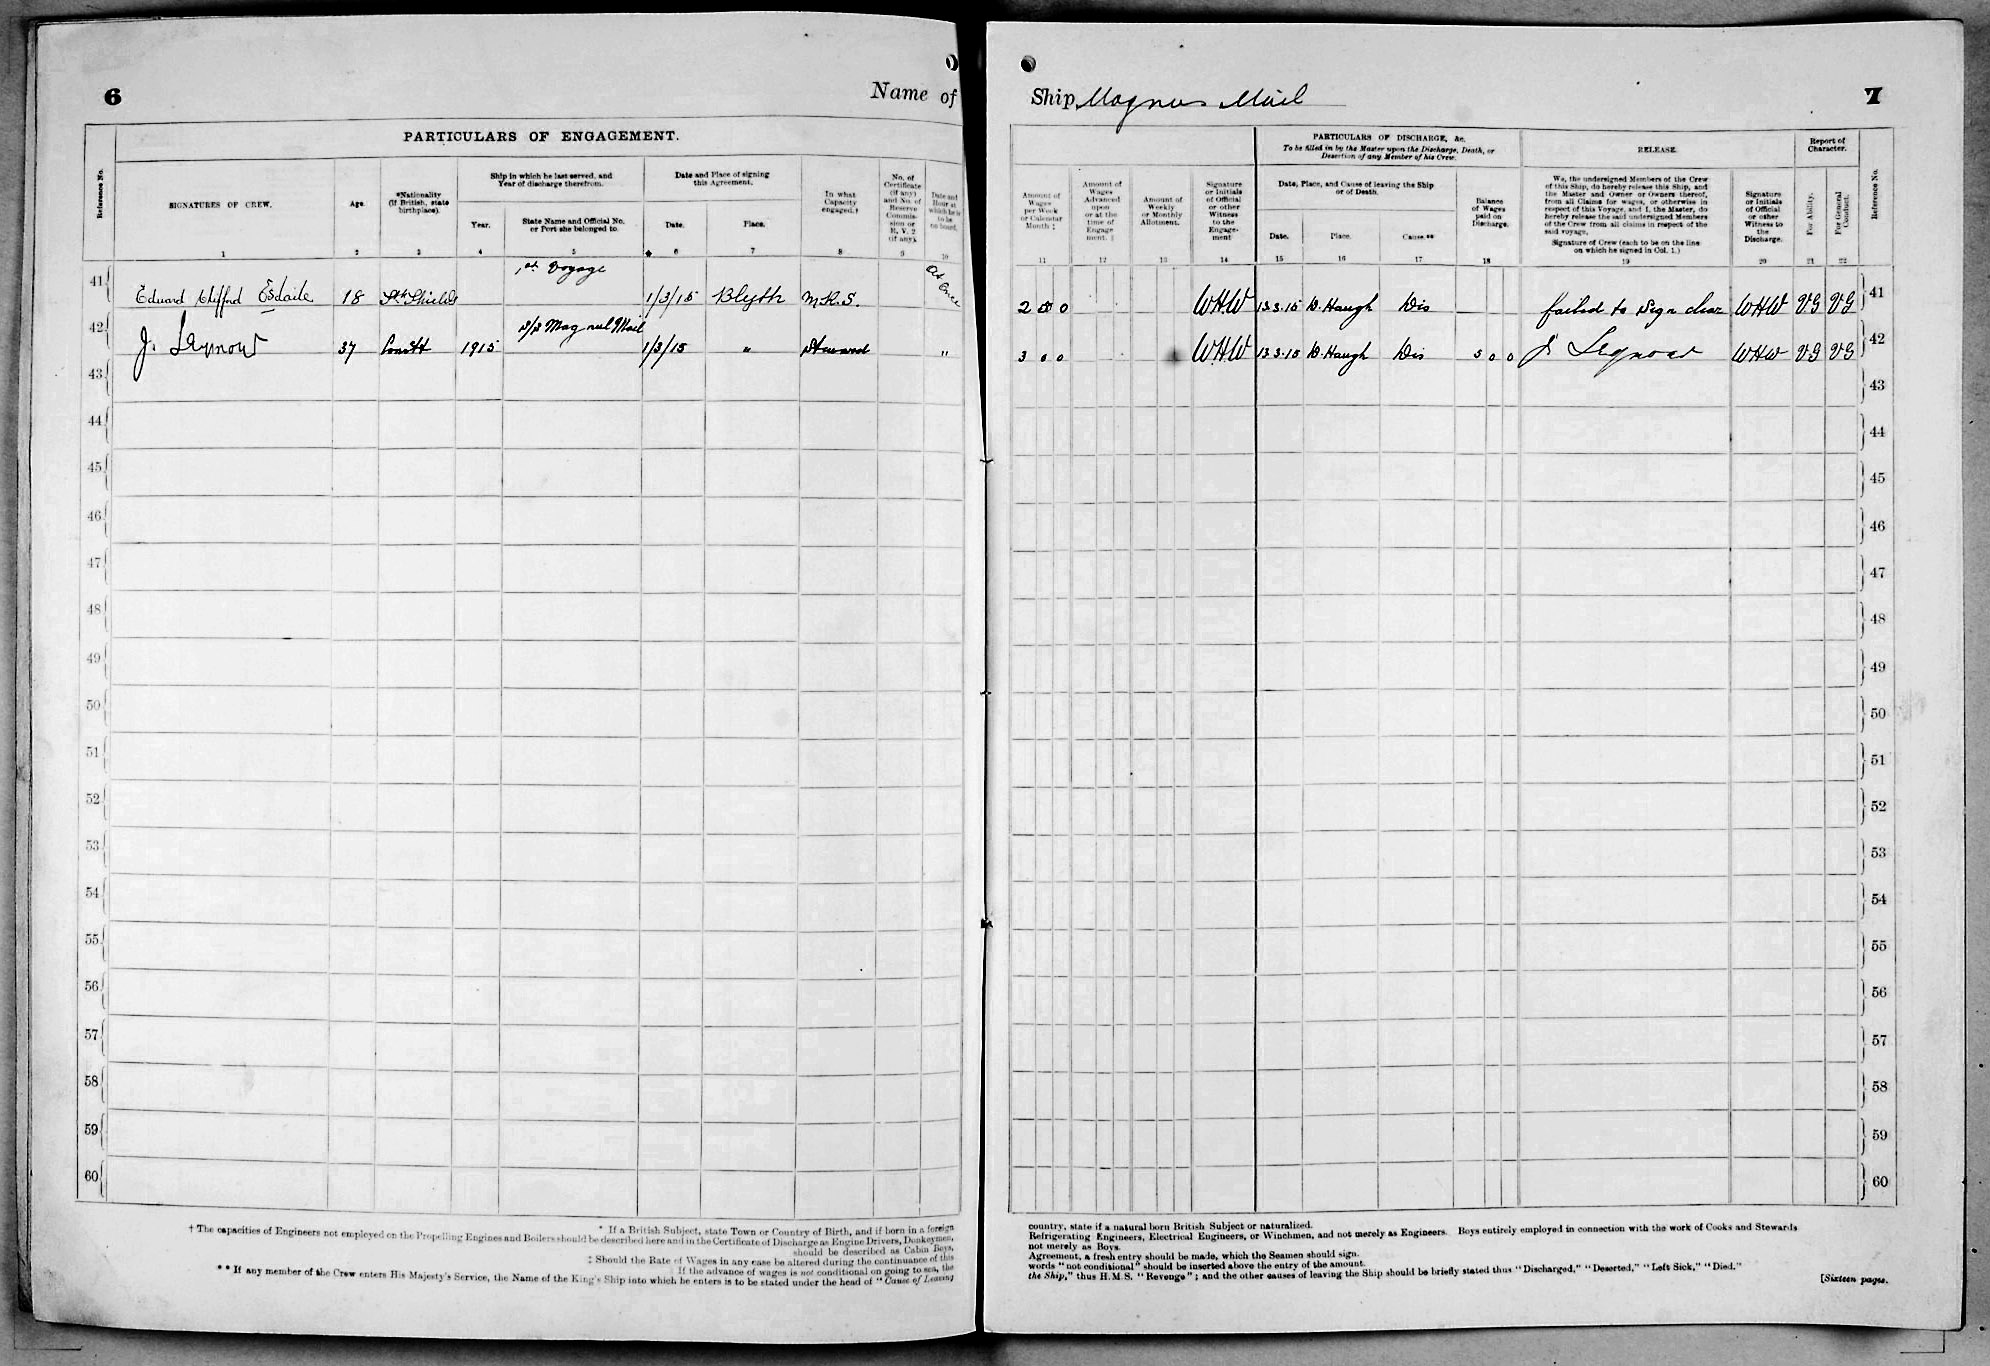 6
Name of
PARTICULARS OF ENGAGEMENT.
Reference No.
SIGNATURES OF CREW.
Age.
*Nationality
(If British, state
birthplace).
Ship in which he last served, and
Year of discharge therefrom.
Year.
State Name and Official No.
or Port she belonged to.
Date and Place of signing
this Agreement.
Date.
Place.
In what
Capacity
engaged.†
No. of
Certificate
(if any)
and No. of
Reserve
Commis-
sion or
R. V. 2
(if any).
Date and
Hour at
which he is
to be
on board.
1 2 3 4 5 6 7 8 9 10
1st Voyage
At Once
41 Edward Clifford Esdaile 18 Sth Shields 1/3/15 Blyth M.R.S.
S/S Magnus Mail
42 J. 37 1915 1/3/15 " Steward "
43
44
45
46
47
48
49
50
51
52
53
54
55
56
57
58
59
60
* If a British Subject, state Town or Country of Birth, and if born in a foreign
† The capacities of Engineers not employed on the Propelling Engines and Boilers should be described here and in the Certificate of Discharge as Engine Drivers, Donkeymen,
should be described as Cabin Boys,
‡ Should the Rate of Wages in any case be altered during the continuance of this
‡ If the advance of wages is not conditional on going to sea, the
** If any member of the Crew enters His Majesty's Service, the Name of the King's Ship into which he enters is to be stated under the head of "Cause of Leaving
Ship Magnus Mail
7
Amount of
Wages
per Week
or Calendar
Month ‡
Amount of
Wages
Advanced
upon
or at the
time of
Engage
ment. ‡
Amount of
Weekly
or Monthly
Allotment.
Signature
or Initials
of Official
or other
Witness
to the
Engage-
ment
PARTICULARS OF DISCHARGE, &c.
To be filled in by the Master upon the Discharge, Death, or
Desertion of any Member of his Crew.
Date, Place, and Cause of leaving the Ship
or of Death.
Date.
Place.
Cause.**
Balance
of Wages
paid on
Discharge.
RELEASE.
We, the undersigned Members of the Crew
of this Ship, do hereby release this Ship, and
the Master and Owner or Owners thereof,
from all Claims for wages, or otherwise in
respect of this Voyage, and I, the Master, do
hereby release the said undersigned Members
of the Crew from all claims in respect of the
said voyage.
Signature of Crew (each to be on the line
on which he signed in Col. 1.)
Signature
or Initials
of Official
or other
Witness to
the
Discharge.
Report of
Character.
For Ability.
For General
Conduct.
Reference No.
11 12 13 14 15 16 17 18 19 20 21 22
2 0 WHW 13.3.15 W. Haugh Dis failed to sign clear WHW VG VG 41
3 0 0 WHW 13.3.15 W. Haugh Dis 5 0 0 J. WHW VG VG 42
43
44
45
46
47
48
49
50
51
52
53
54
55
56
57
58
59
60
country, state if a natural born British Subject or naturalized.
Refrigerating Engineers, Electrical Engineers, or Winchmen, and not merely as Engineers. Boys entirely employed in connection with the work of Cooks and Stewards
not merely as Boys.
Agreement, a fresh entry should be made, which the Seamen should sign.
words "not conditional" should be inserted above the entry of the amount.
the Ship," thus H.M.S. "Revenge"; and the other causes of leaving the Ship should be briefly stated thus "Discharged," "Deserted," "Left Sick," "Died."
[Sixteen pages.